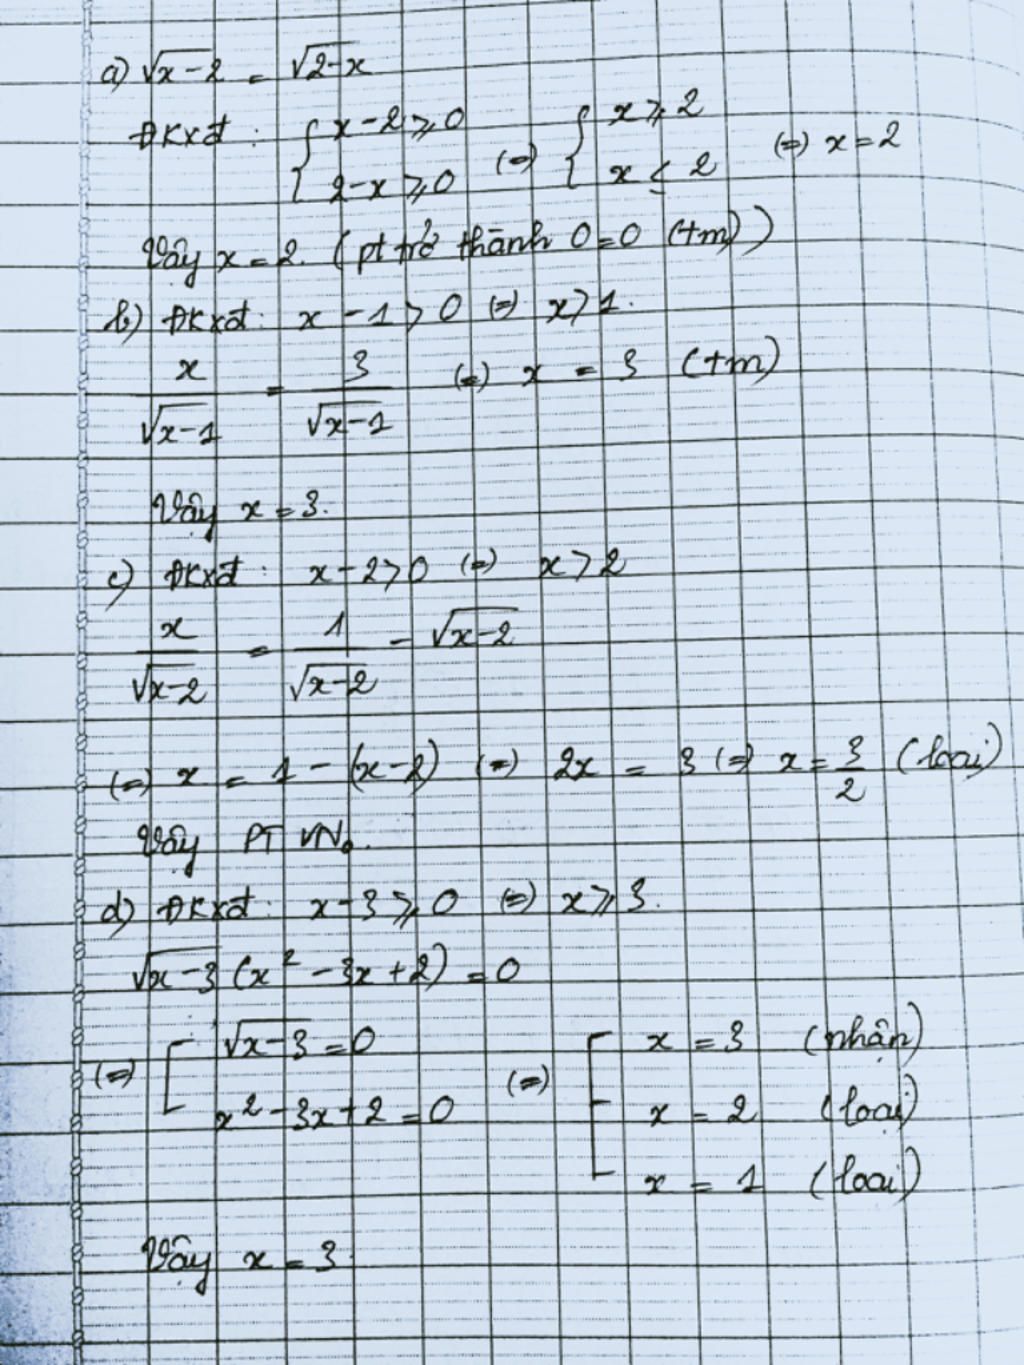 a) √x-2 = √2-x
ĐKXĐ : { x-2 ⩾ 0 ; 2-x ⩾ 0 (=) { x ⩾ 2 ; x ≤ 2 (=) x = 2
Vậy x = 2. (pt trở thành 0=0 (tm))
b) ĐKXĐ: x - 1 > 0 (=) x > 1.
x/√x-1 = 3/√x-1 (=) x = 3 (tm)
Vậy x = 3.
c) ĐKXĐ : x - 2 > 0 (=) x > 2
x/√x-2 = 1/√x-2 - √x-2
(=) x = 1 - (x-2) (=) 2x = 3 (=) x = 3/2 (loại)
Vậy PT VNo.
d) ĐKXĐ: x-3 ⩾ 0 (=) x ⩾ 3.
√x-3 (x² - 3x + 2) = 0
(=) [ √x-3 = 0 ; x² - 3x + 2 = 0 (=) [ x = 3 (nhận) ; x = 2 (loại) ; x = 1 (loại)
Vậy x = 3